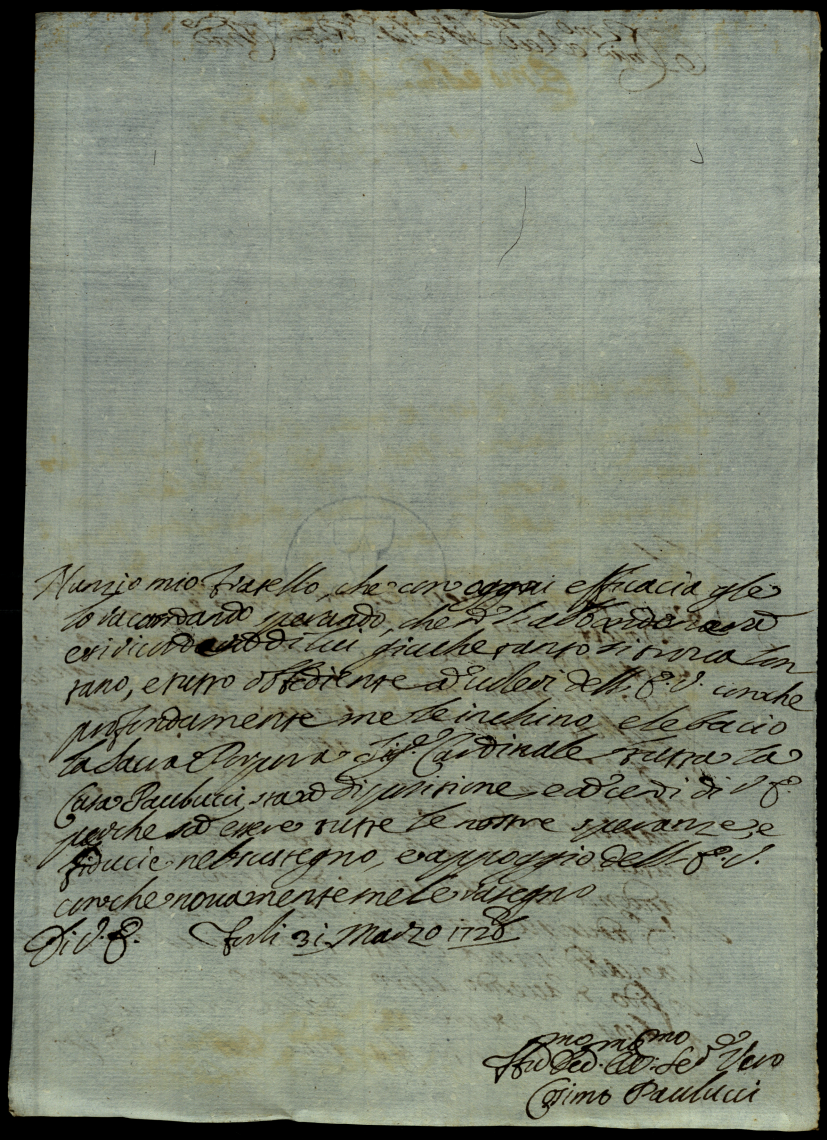 Nunzio mio fratello, che con ogni efficacia gle
lo racomando sperando, che
di lui giache tanto si trova lon
tano, e tutto obbediente a voleri dell. E. V. con che
profondamente me le inchino, e le bacio
la Sacra Porpora Sig.r Cardinale tutta la
Casa Paulucci, sarà a disposizione e a cenni di V. E.
perche sà avere tutte le nostre speranze, e
fiducie nel sostegno, e appoggio dell. E. V.
con che novamente me le rasegno
Di V. E. Forlì 31 Marzo 1726
Vero
Cosimo Paulucci